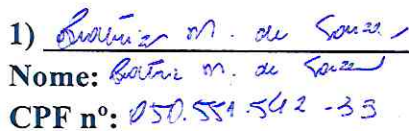 1) Beatriz M. de Souza
Nome: Beatriz M. de Souza
CPF nº: 050.551.542-33